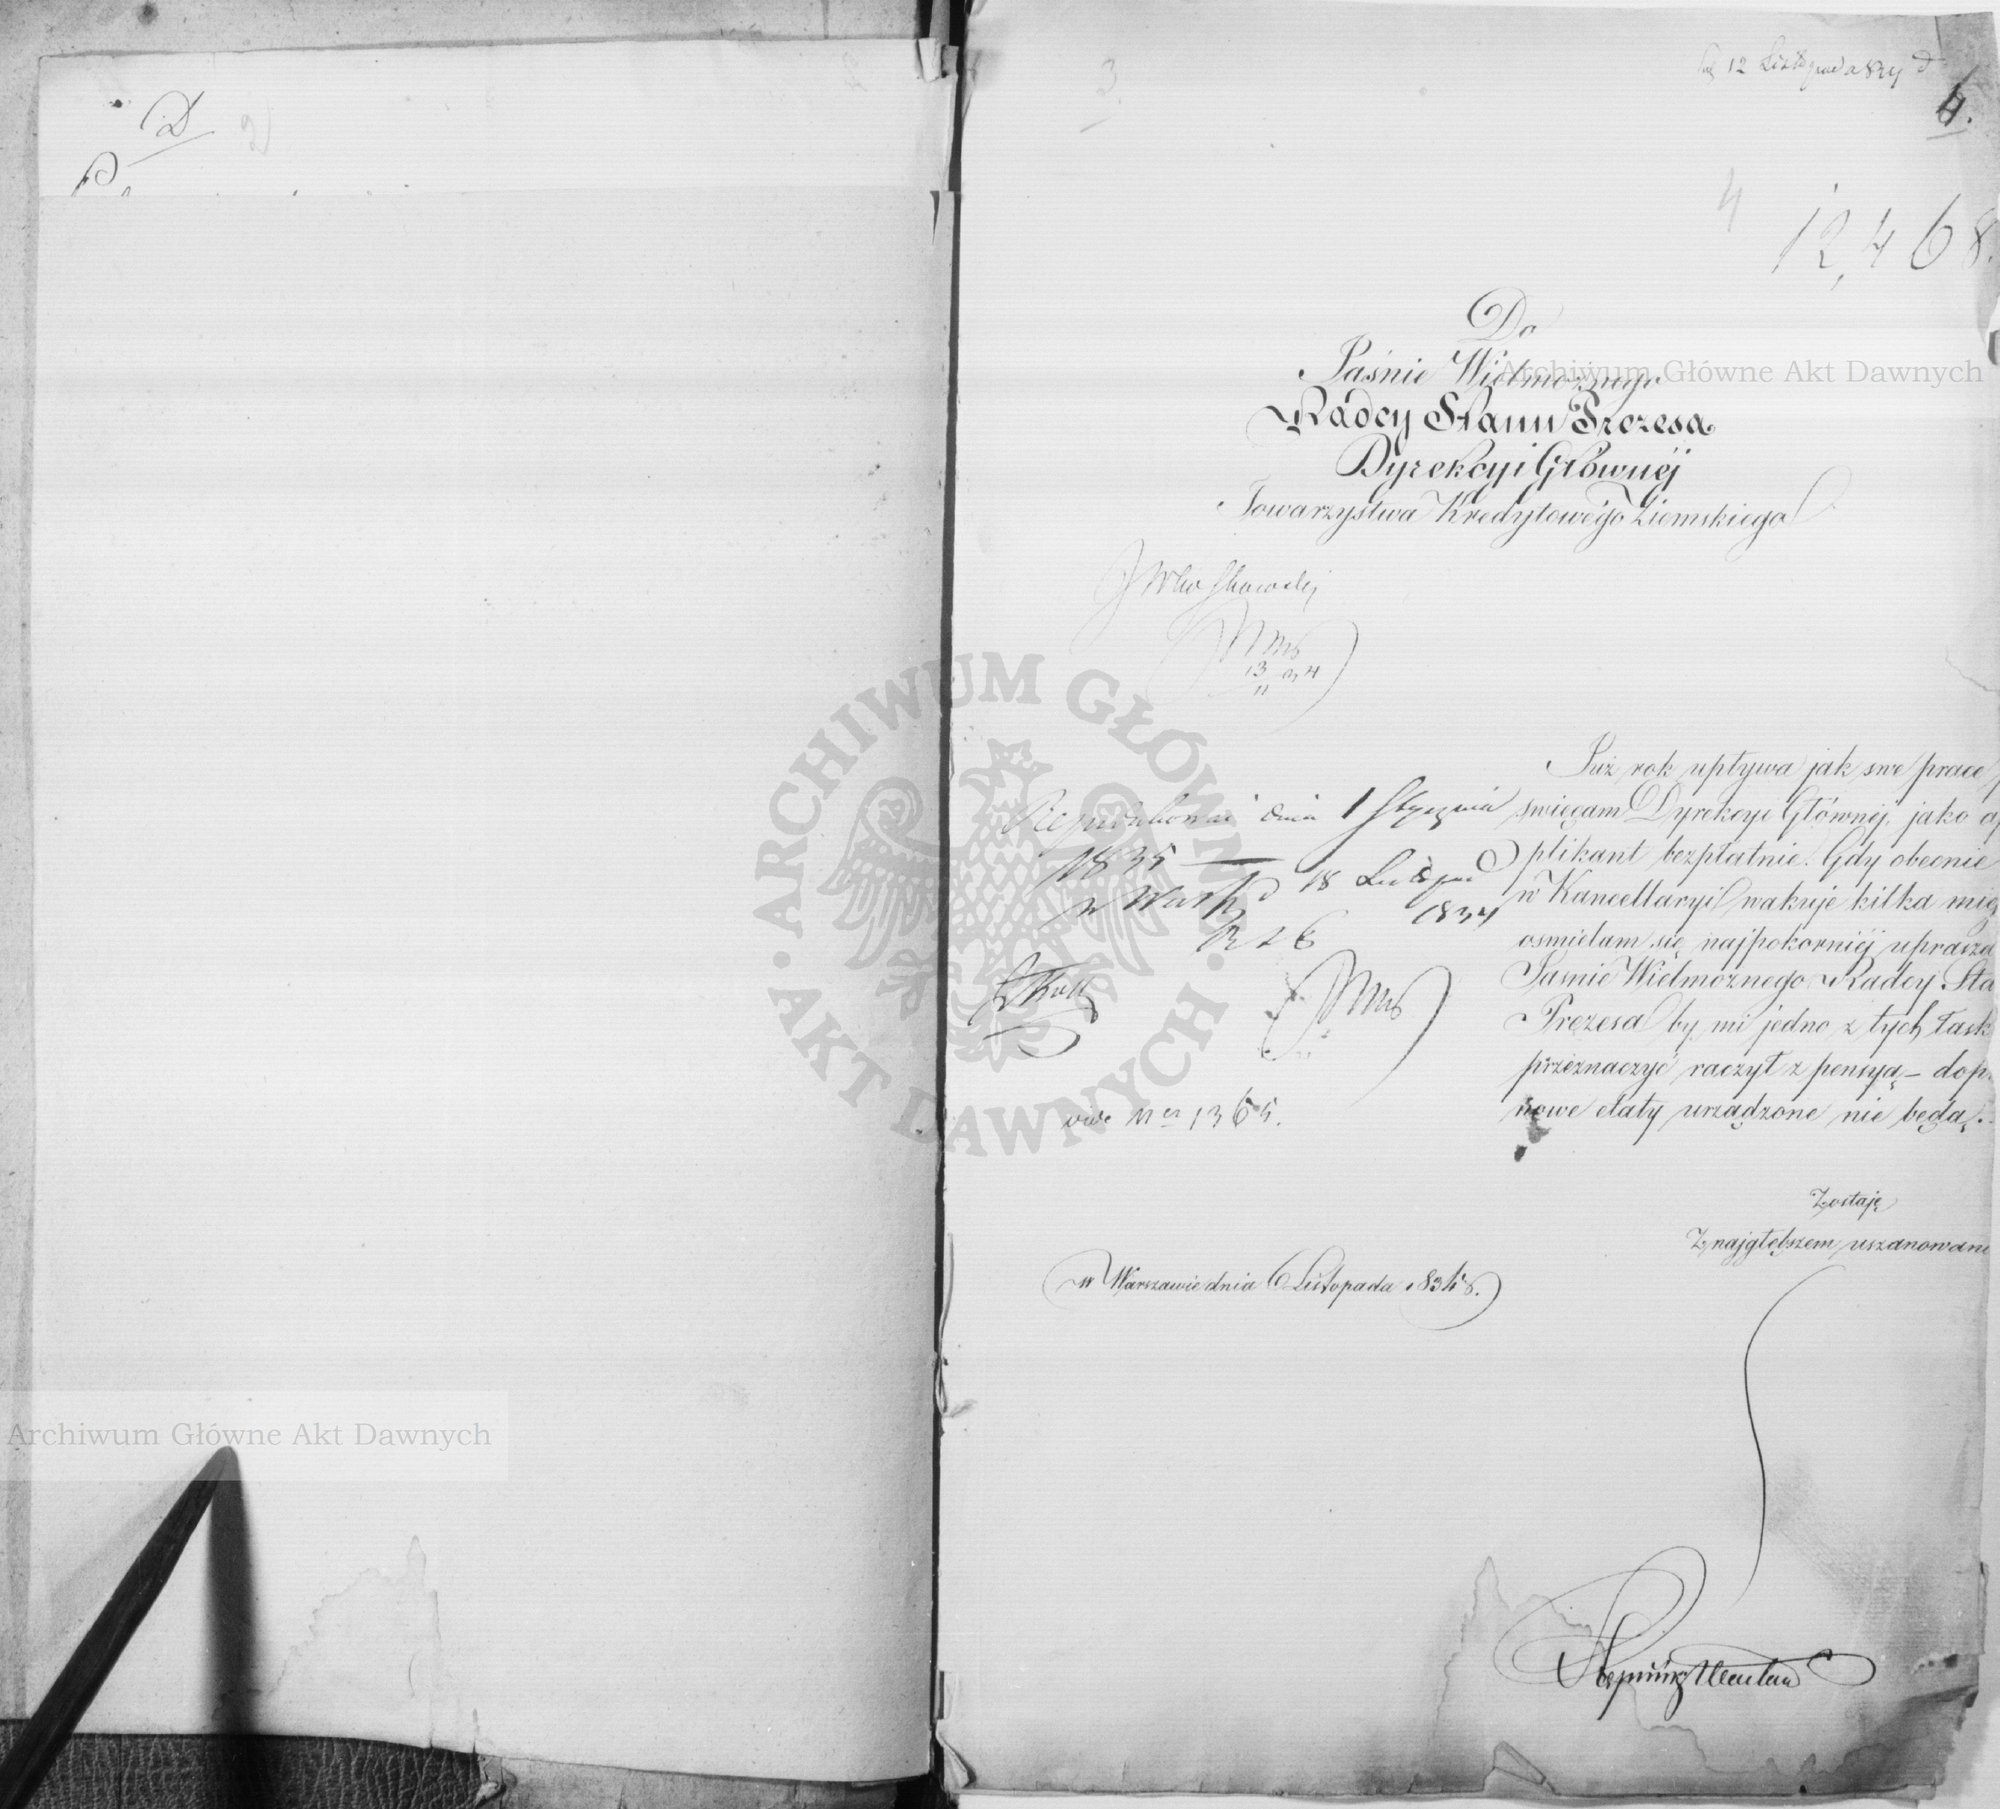 D
2
3.
12 Listopada 834
4.
4
12,468.
Do
Jaśnie Wielmożnego
Radcy Stanu Prezesa
Dyrekcyi Głównéj
Towarzystwa Kredytowégo Ziemskiego
13/11 34
Już rok upływa jak swe prace p
święcam Dyrekcyi Głównéj, jako ap
plikant bezpłatnie. Gdy obecnie
w Kancellaryi wakuje kilka miejs
ośmielam się najpokorniéj uprasza
Jaśnie Wielmożnego Radcy Sta
Prezesa by mi jedno z tych łask
przeznaczyć raczył z pensyą – dop
nowe etaty urządzone nie będą.
dnia 1 Stycznia
1835
18 Listopad
1834
vide Ner 1365.
Zostaję
Z najgłębszem uszanowani
w Warszawie dnia 6 Listopada 1834 r.
Archiwum Główne Akt Dawnych
ARCHIWUM GŁÓWNE AKT DAWNYCH
Archiwum Główne Akt Dawnych